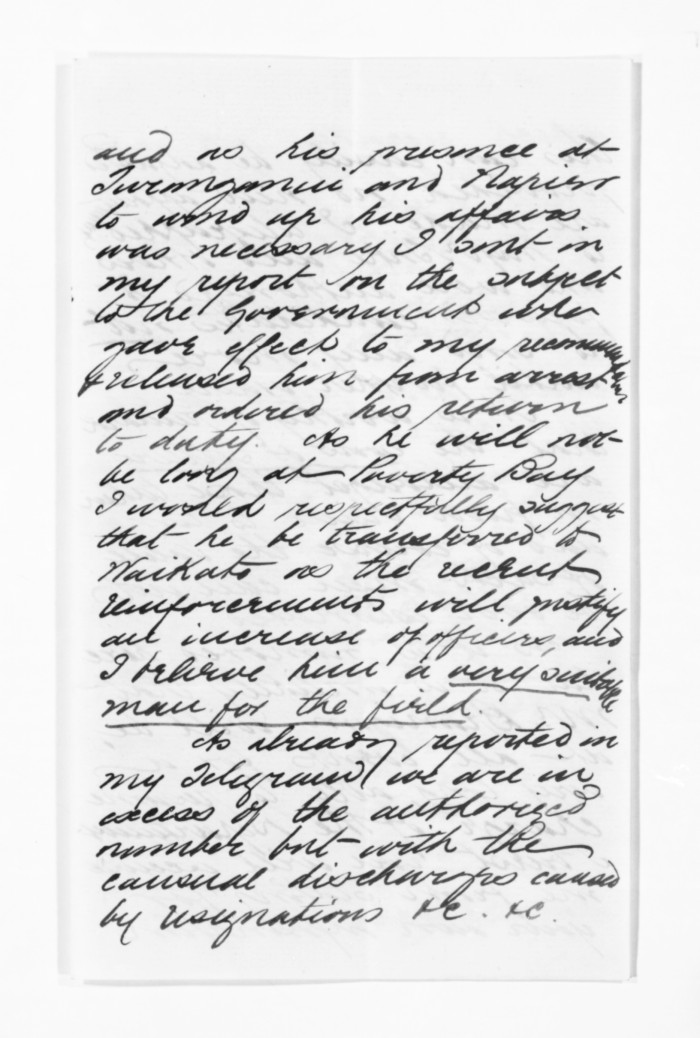 and as his presence at
Turanganui and Napier
to wind up his affairs
was necessary I sent in
my report on the subject
to the Government who
gave effect to my recommendations
& released him from arrest
and ordered his return
to duty. As he will not
be long at Poverty Bay
I would respectfully suggest
that he be transferred to
Waikato as the recent
reinforcements will justify
an increase of officers, and
I believe him a very suitable
man for the field.
As already reported in
my Telegram we are in
excess of the authorized
number but with the
causual discharges caused
by resignations &c. &c.